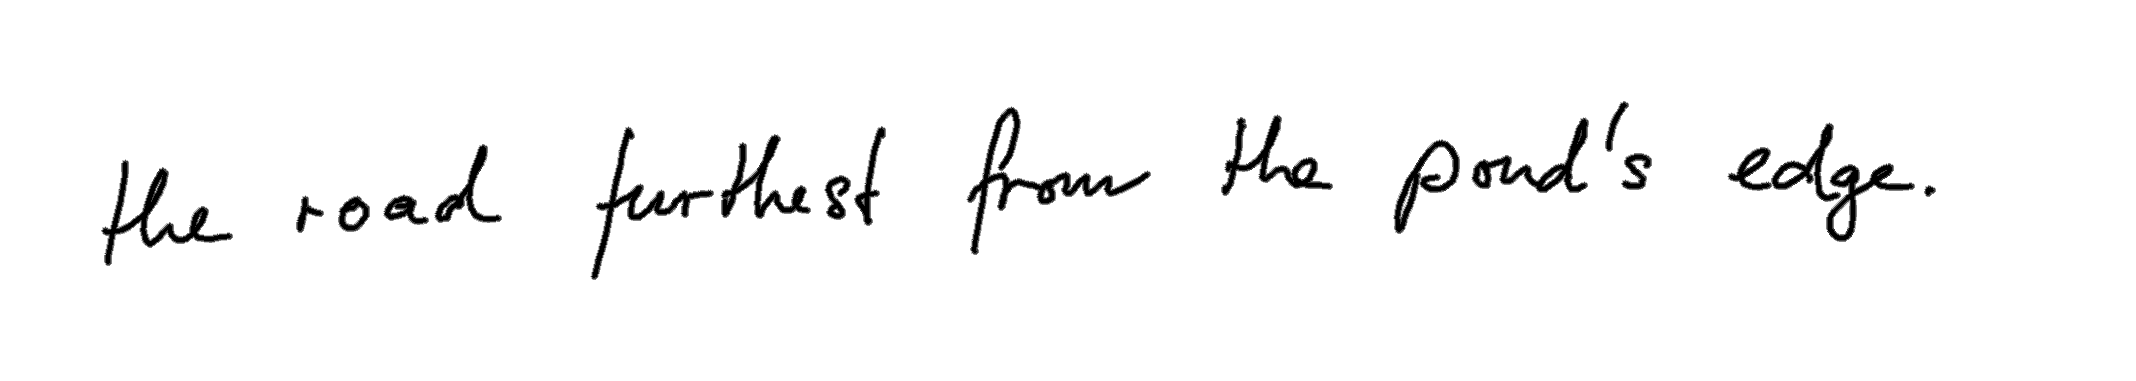 the road furthest from the pond's edge.